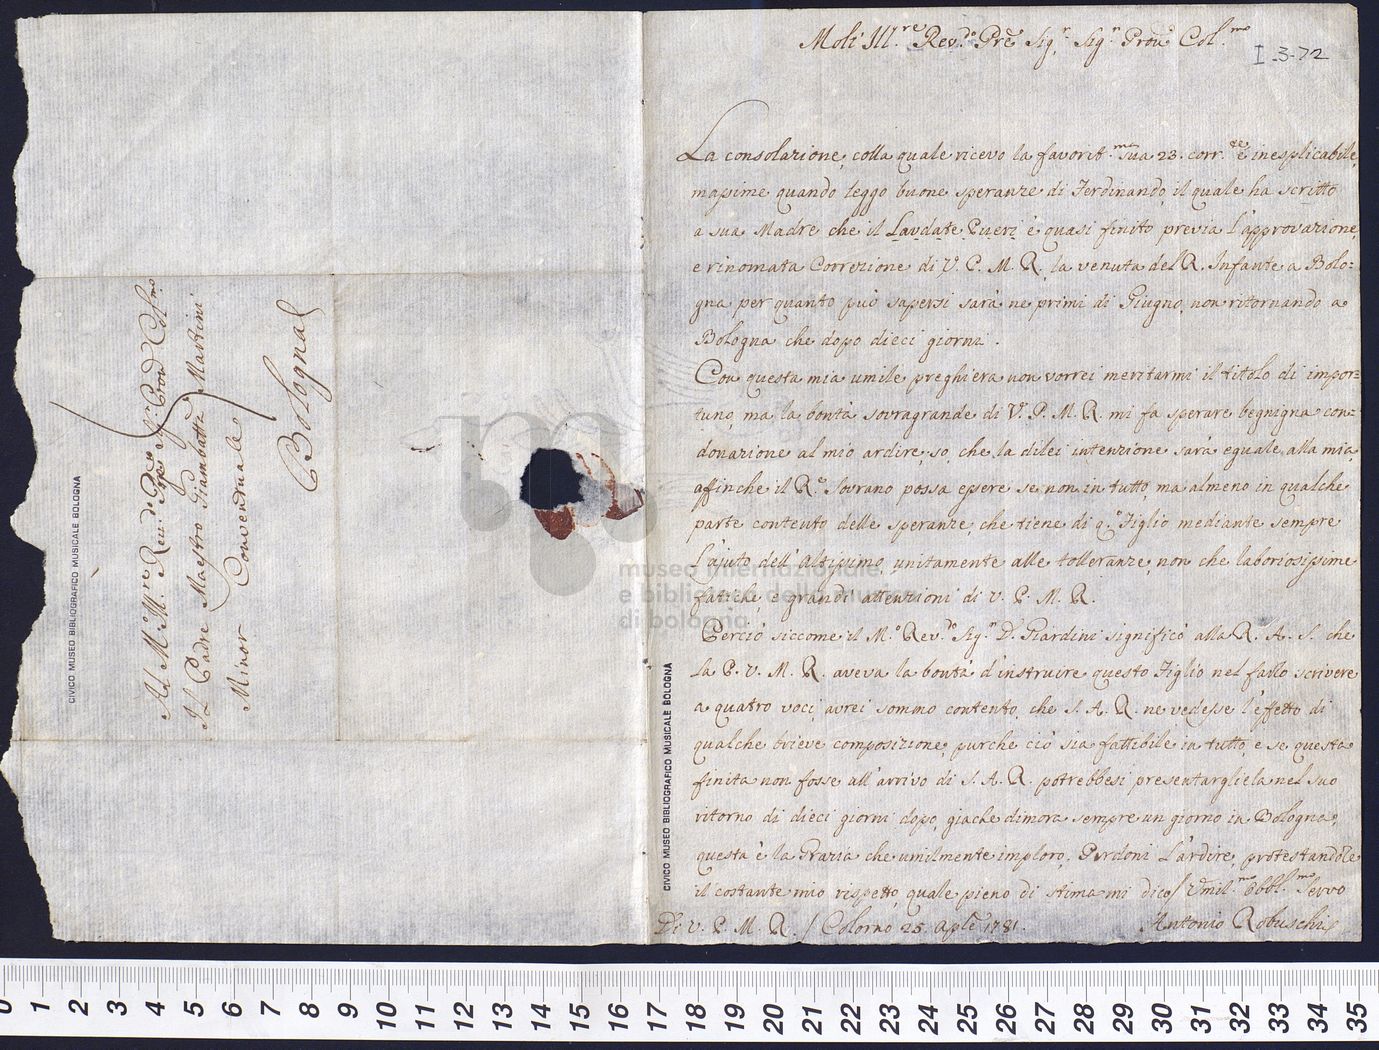 Molt' Ill.re Rev.do Pre Sig.r Sig.r Pron Col.mo
I-3-72
La consolazione, colla quale ricevo la favorit.ma sua 23. corr.te è inesplicabile,
massime quando leggo buone speranze di Ferdinando, il quale ha scritto
a sua Madre che il Laudate Pueri è quasi finito previa l'approvazione,
e rinomata Correzione di V. P. M. R. la venuta del R. Infante a Bolo=
gna per quanto può sapersi sarà ne primi di Giugno, non ritornando a
Bologna che dopo dieci giorni.
Con questa mia umile preghiera non vorrei meritarmi il titolo di impor=
tuno, ma la bontà sovragrande di V. P. M. R. mi fa sperare begnigna con=
donazione al mio ardire, so, che la dilei intenzione sarà eguale alla mia,
affinche il R.e Sovrano possa essere se non in tutto, ma almeno in qualche
parte contento delle speranze, che tiene di q.o Figlio mediante sempre
l'ajuto dell'Altissimo, unitamente alle tolleranze, non che laboriosissime
fatiche, e grandi attenzioni di V. P. M. R.
Perciò siccome il M.o Rev.do Sig.r D. Giardini significò alla R. A. S. che
la P. V. M. R. aveva la bontà d'instruire questo Figlio nel farlo scrivere
a quatro voci, avrei sommo contento, che S. A. R. ne vedesse l'effetto di
qualche brieve composizione, purche ciò sia fattibile in tutto, e se questa
finita non fosse all'arrivo di S. A. R. potrebbesi presentargliela nel suo
ritorno di dieci giorni dopo, giache dimora sempre un giorno in Bologna,
questa è la Grazia che umilmente imploro. Perdoni l'ardire, protestandole
il costante mio rispetto, quale pieno di stima mi dico / Umil.mo Obbl.mo Servo
Di V. P. M. R. / Colorno 25 Aple 1781. Antonio Robuschi
Al M. M.re Rev.do Pre Sig.r Pron Col.mo
Il Padre Maestro Giambatta Martini
Minor Conventuale
Bologna
CIVICO MUSEO BIBLIOGRAFICO MUSICALE BOLOGNA
CIVICO MUSEO BIBLIOGRAFICO MUSICALE BOLOGNA
museo internazionale
e biblioteca della musica
di bologna
0 1 2 3 4 5 6 7 8 9 10 11 12 13 14 15 16 17 18 19 20 21 22 23 24 25 26 27 28 29 30 31 32 33 34 35